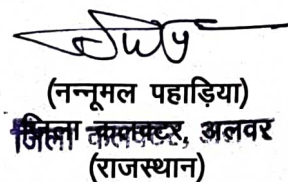 (नन्नूमल पहाड़िया)
जिला कलक्टर, अलवर
(राजस्थान)